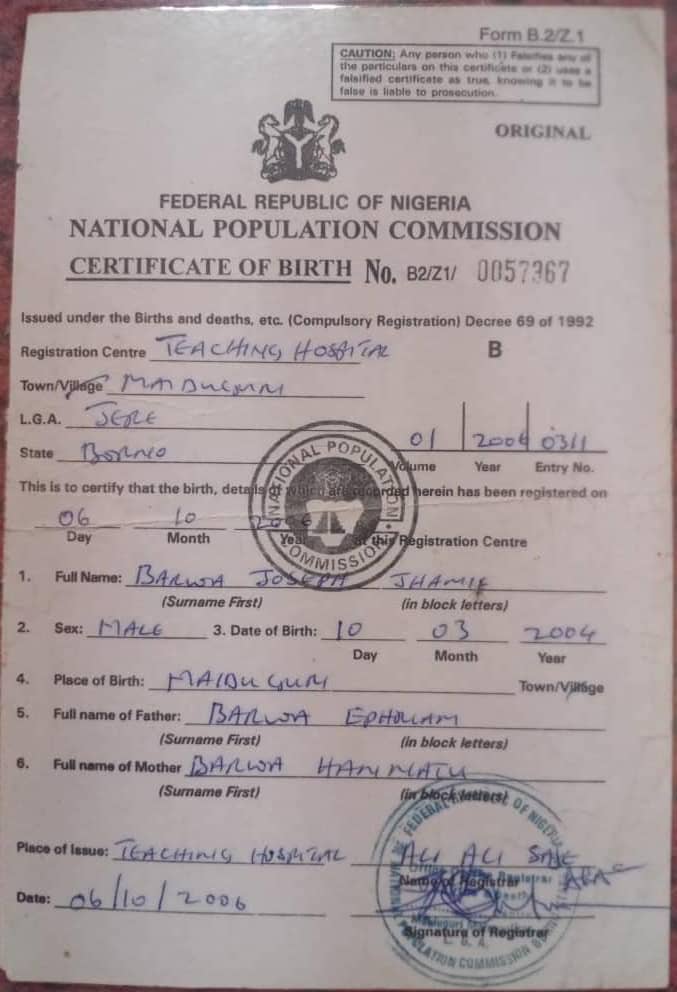 Form B.2/Z.1
CAUTION; Any person who (1) Falsifies any of
the particulars on this certificate or (2) uses a
falsified certificate as true, knowing it to be
false is liable to prosecution.
ORIGINAL
FEDERAL REPUBLIC OF NIGERIA
NATIONAL POPULATION COMMISSION
CERTIFICATE OF BIRTH No. B2/Z1/ 0057367
Issued under the Births and deaths, etc. (Compulsory Registration) Decree 69 of 1992
Registration Centre TEACHING HOSPITAL B
Town/Village MAIDUGURI
L.G.A. JERE
State BORNO 01 2006 0311
Volume Year Entry No.
NATIONAL POPULATION COMMISSION
This is to certify that the birth, details of which are recorded herein has been registered on
06 10 2006
Day Month Year at this Registration Centre
1. Full Name: BARWA JOSEPH
(Surname First) (in block letters)
2. Sex: MALE 3. Date of Birth: 10 03 2004
Day Month Year
4. Place of Birth: MAIDUGURI Town/Village
5. Full name of Father: BARWA
(Surname First) (in block letters)
6. Full name of Mother BARWA
(Surname First) (in block letters)
Place of Issue: TEACHING HOSPITAL ALI ALI
Name of Registrar
Date: 06/10/2006
Signature of Registrar
L. G. A.